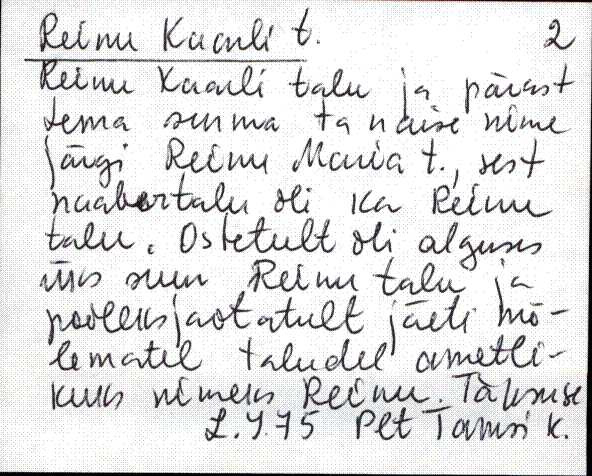 Reinu Kaarli t. 2
Reinu Kaarli talu ja pärast
tema surma ta naise nime
järgi Reinu Maria t., sest
naabertalu oli ka Reinu
talu. Ostetult oli alguses
üks suur Reinu talu ja
pooleksjaotatult jäeti mõ-
lematel taludel ametli-
kuks nimeks Reinu.
L.J.75 Plt Tamsi k.